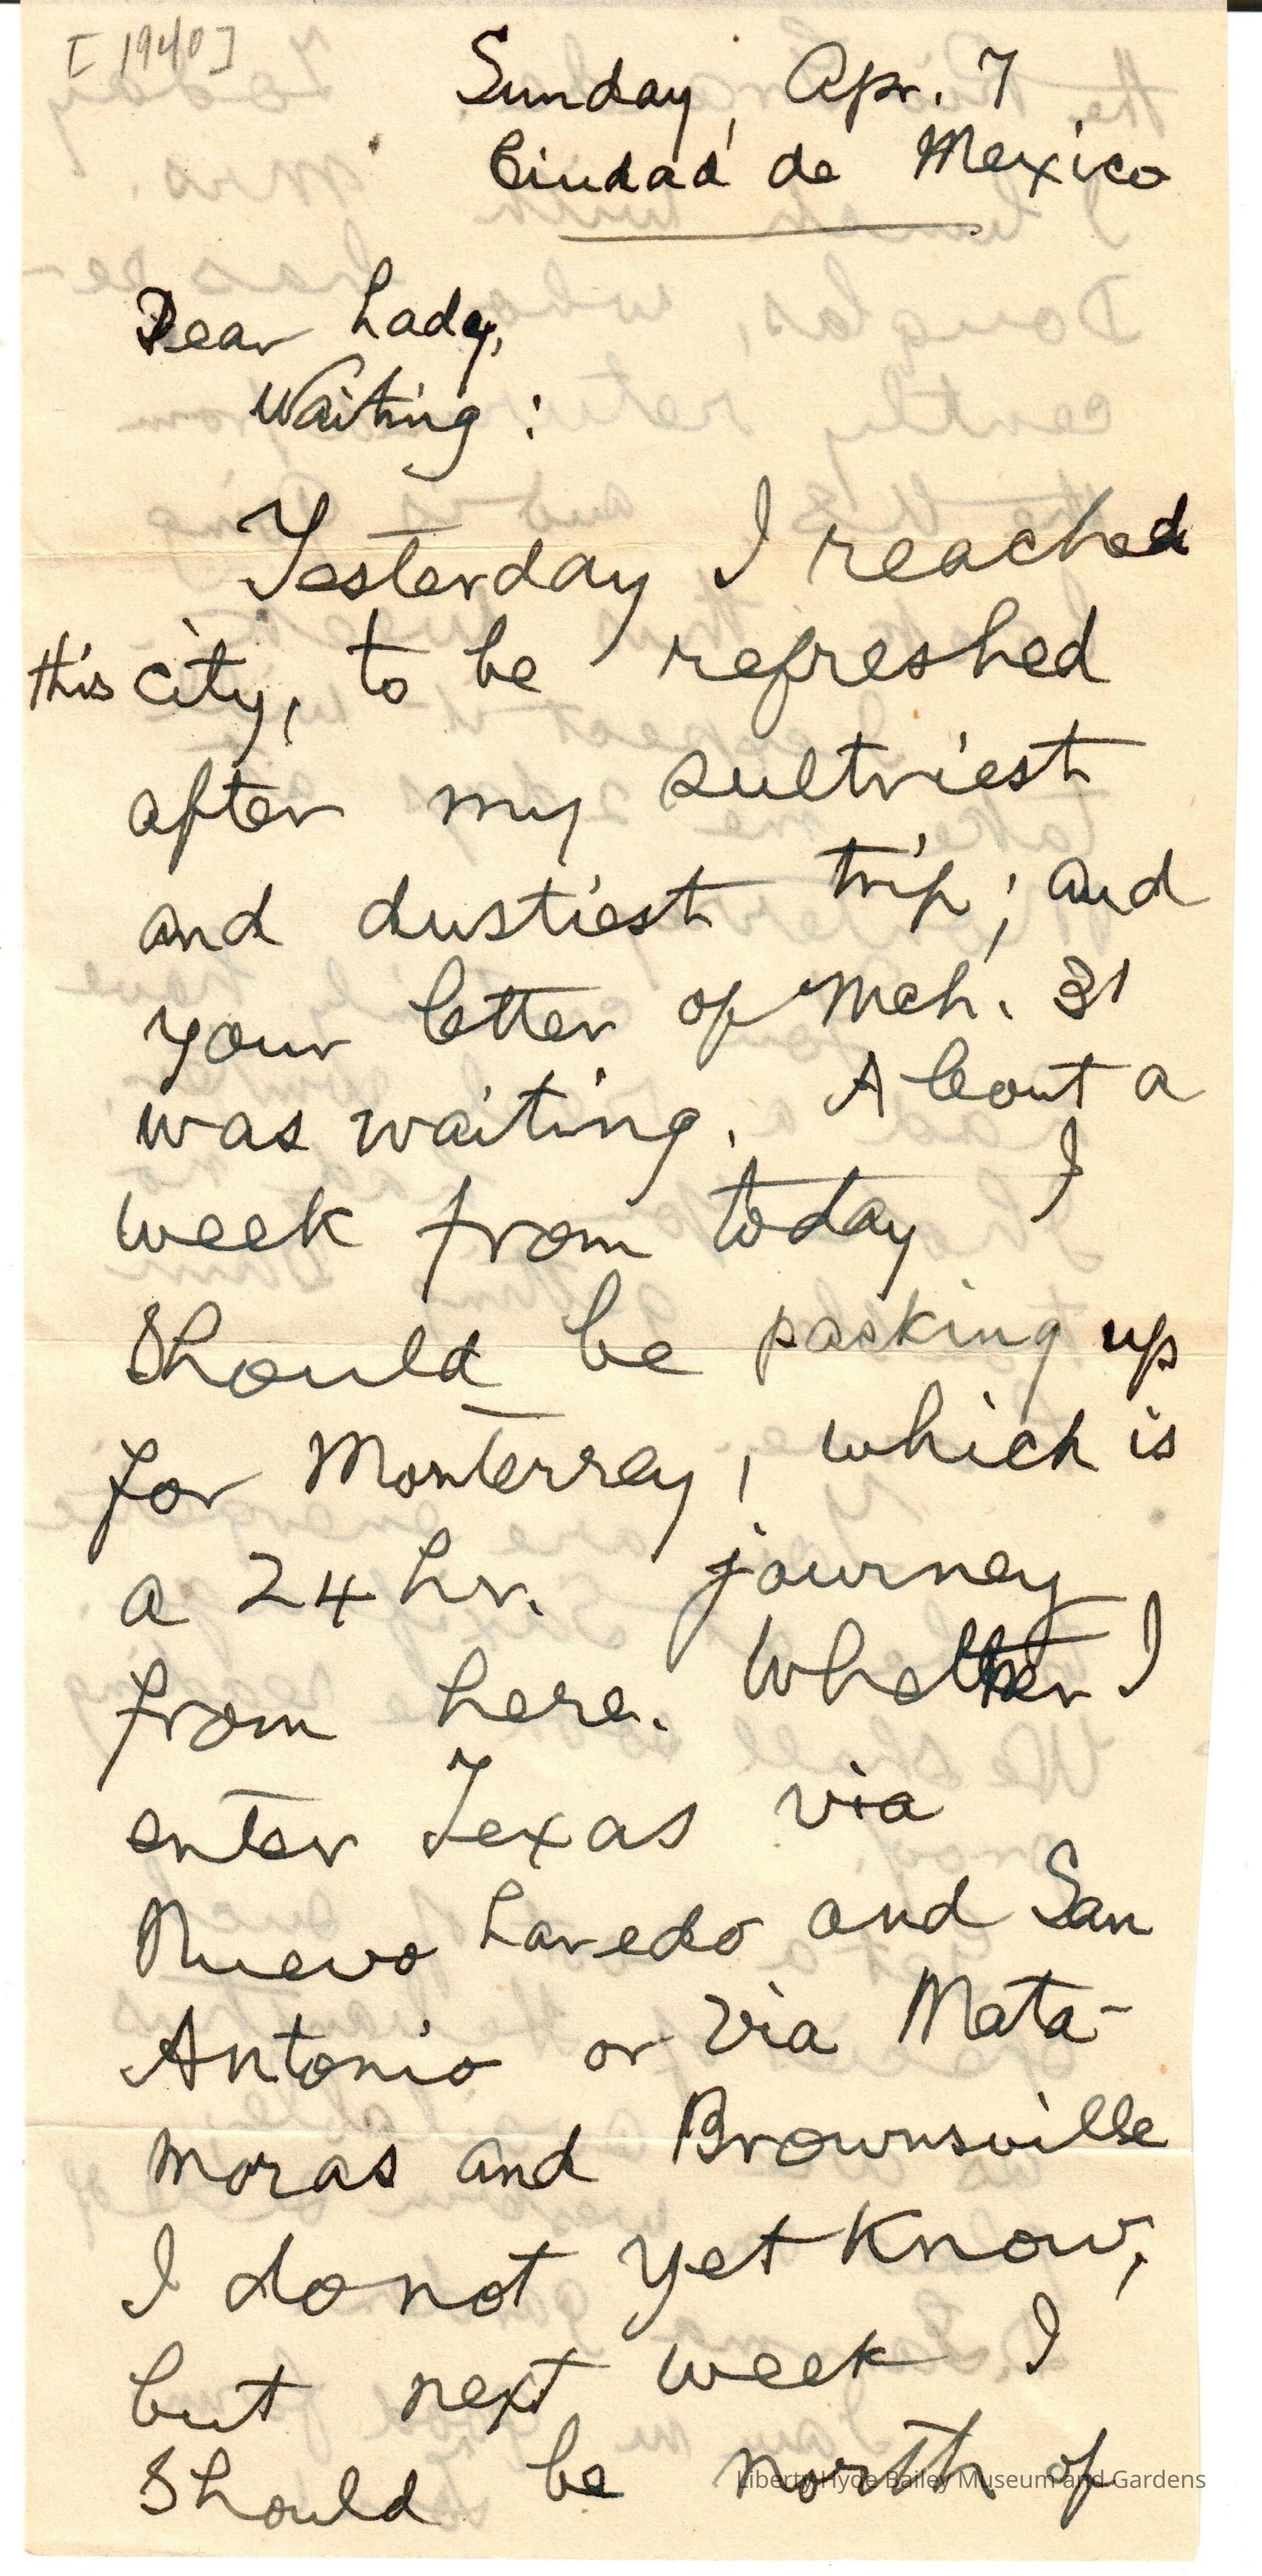 [1940]
Sunday, Apr. 7
Ciudad de Mexico
Dear Lady,
Waiting:
Yesterday I reached
this city, to be refreshed
after my sultriest
and dustiest trip; and
your letter of Mch. 31
was waiting. About a
week from today I
should be packing up
for Monterrey, which is
a 24 hr. journey
from here. Whether I
enter Texas via
Nuevo Laredo and San
Antonio or via Mata-
moras and Brownsville
I do not yet know,
but next week I
should be north of
Liberty Hyde Bailey Museum and Gardens